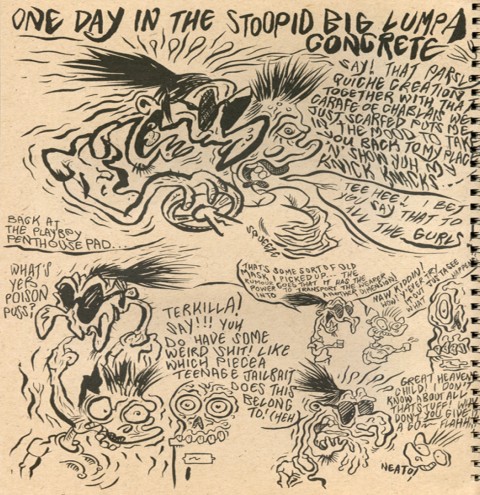 ONE DAY IN THE STOOPID BIG LUMPA
CONCRETE
SAY! THAT PARSL
QUICHE CREATION
TOGETHER WITH THA
CARAFE OF CHABLAIS WE
JUST SCARFED PUTS ME
THE MOOD T' TAK
YOU BACK TO MY PLACE
'N' SHOW YUH MY
KNICK KNACKS
TEE HEE! I BET
YOU SAY THAT TO
ALL THE GURLS
SQUEEZE
BACK AT
THE PLAYBOY
PENTHOUSE PAD...
WHAT'S
YER
POISON
PUSS?
TERKILLA!
SAY!!! YUH
DO HAVE SOME
WEIRD SHIT! LIKE
WHICH PIECEA
TEENAGE JAILBAIT
DOES THIS
BELONG
TO! (HEH
THAT'S SOME SORT OF OLD
MASK I PICKED UP... THE
RUMOUR GOES THAT IT HAS THE
POWER TO TRANSPORT THE WEARER
INTO ANOTHER DIMENSION!
NAW KIDDIN!
TRY
JUSTA SEE
WHAT HAPPEN
GREAT HEAVENS
CHILD! I DON'T
KNOW ABOUT ALL
THAT STUFF!
DON'T YOU GIVE
A
NEATO!